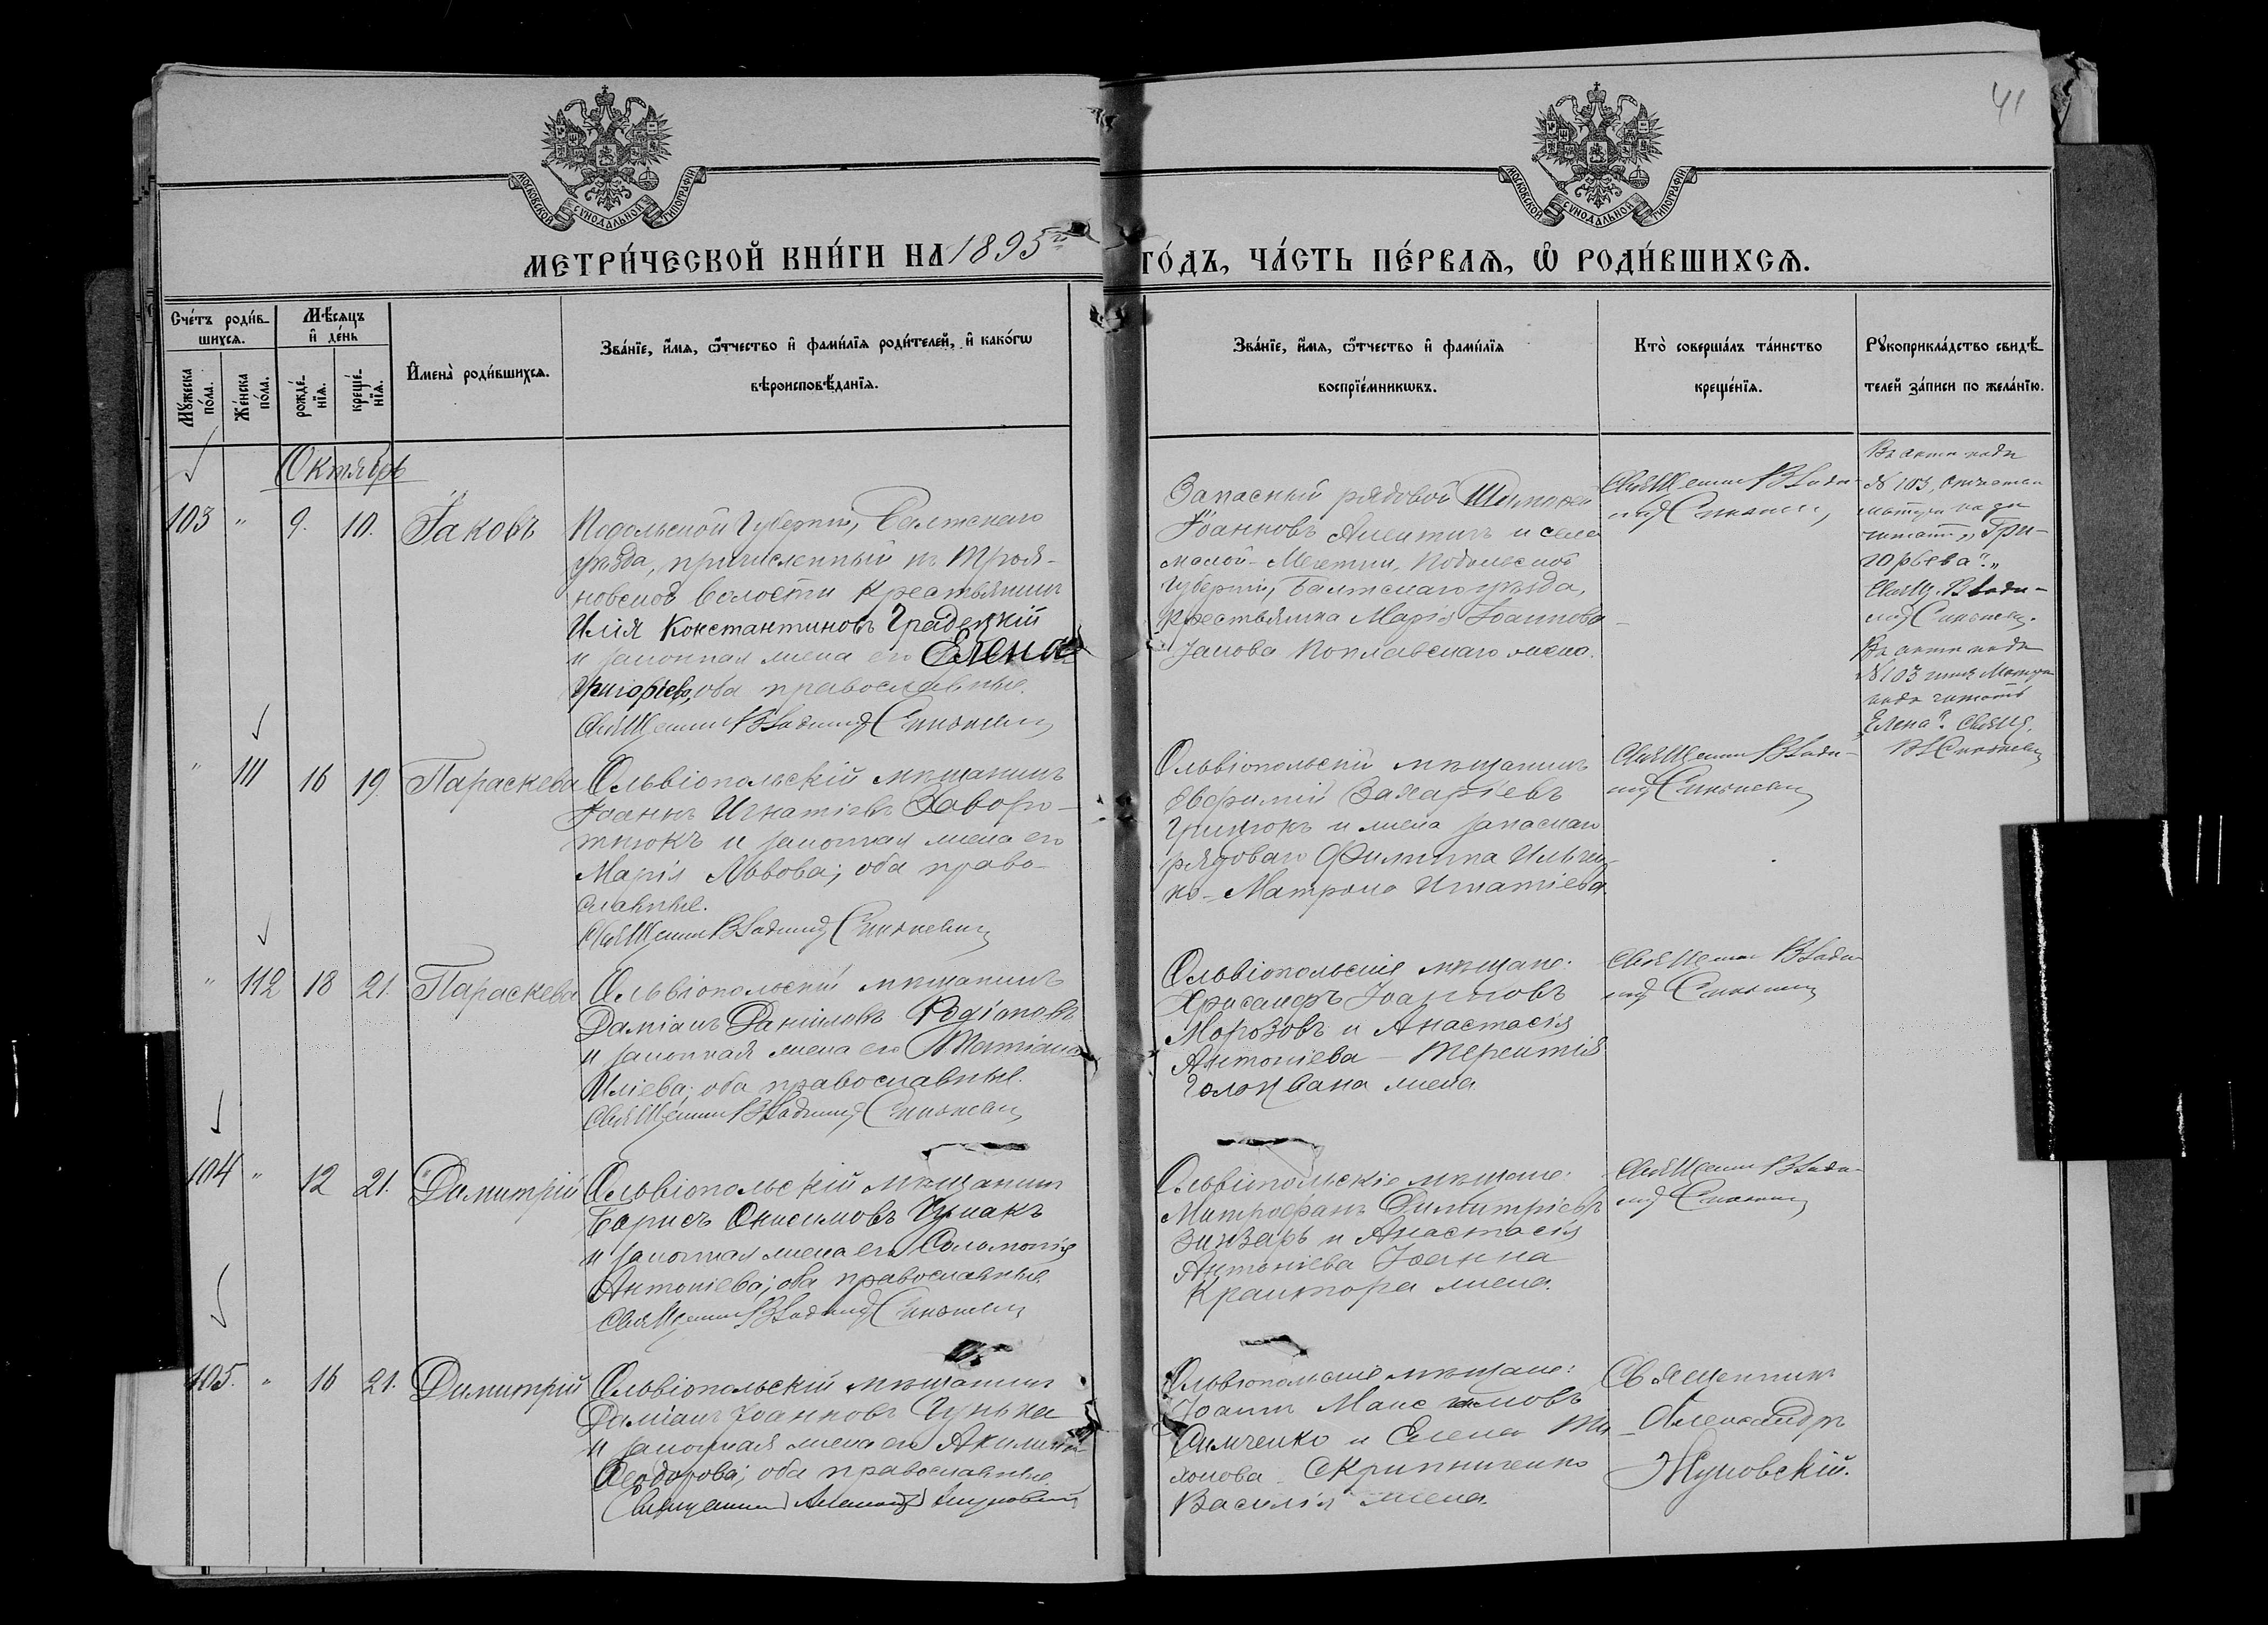 41
МОСКОВСКОЙ СУНОДАЛЬНОЙ ТИПОГРАФІИ
МОСКОВСКОЙ СУНОДАЛЬНОЙ ТИПОГРАФІИ
МЕТРИ́ЧЕСКОЙ КНИ́ГИ НА 1895 ГО́ДЪ, ЧА́СТЬ ПЕ́РВАѦ, Ѡ҆ РОДИ́ВШИХСѦ.
Сче́тъ роди́в-
шихсѧ.
Мꙋ́жеска по́ла.
Же́нска по́ла.
Мѣ́сѧцъ
и҆ де́нь
рожде́-
нїѧ.
креще́-
нїѧ.
И҆мена̀ роди́вшихсѧ.
Зва́нїе, и҆́мѧ, ѻ҆́тчество и҆ фами́лїѧ роди́телей, и҆ како́гѡ
вѣроисповѣ́данїѧ.
Зва́нїе, и҆́мѧ, ѻ҆́тчество и҆ фами́лїѧ
воспрїе́мникѡвъ.
Кто̀ соверша́лъ та́инство
креще́нїѧ.
Рꙋкоприкла́дство свидѣ́-
телей за́писи по жела́нїю.
Октябрь
103 " 9. 10. Іаковъ
Подольской Губерніи, Балтскаго
уѣзда, причисленный къ Троя-
новской волости крестьянинъ
Илія Константиновъ Градецкій
и законная жена его Елена
Григорьева, оба православные.
Священникъ Владимір
Запасный рядовой
Іоанновъ и села
малой Мечетни, Подольской
губерніи, Балтскаго уѣзда,
крестьянка Марія Іоаннова
Іакова Поплавскаго жена.
Священникъ Влади-
мір
Въ актѣ подъ
№ 103, отчество
матери надо
читать „Гри-
горьева“.
Свящ. Влади-
мір
Въ актѣ подъ
№ 103 имя Матери
надо читать
„Елена“. Свящ.
" 111 16 19. Параскева
Ольвіопольскій мѣщанинъ
Іоаннъ Игнатіевъ Хаворо-
тнюкъ и законная жена его
Марія Львова; оба право-
славные.
Священникъ Владимір
Ольвіопольскій мѣщанинъ
Евфимій Захаріевъ
и жена запаснаго
рядоваго Филиппа Ильчен-
ко - Матрона Игнатіева
Священникъ Влади-
мір
" 112 18 21. Параскева
Ольвіопольскій мѣщанинъ
Даміанъ Даніиловъ Родіоновъ
и законная жена его Татіана
Иліева; оба православные.
Священникъ Владимір
Ольвіопольскіе мѣщане:
Хрисанфъ Іоанновъ
Морозовъ и Анастасія
Антоніева - Терентія
Голована жена
Священникъ Влади-
мір
104 " 12 21. Димитрій
Ольвіопольскій мѣщанинъ
Борисъ Онисимовъ Чумакъ
и законная жена его Соломонія
Антоніева; оба православные.
Священникъ Владимір
Ольвіопольскіе мѣщане:
Митрофанъ Димитріевъ
Зинзарь и Анастасія
Антоніева Іоанна
Крантора жена.
Священникъ Влади-
мір
105. " 16 21. Димитрій
Ольвіопольскій мѣщанинъ
Даміанъ Іоанновъ Гунька
и законная жена его Акилина
Ѳеодорова; оба православные
Священникъ Александръ Жуковскій
Ольвіопольскіе мѣщане:
Іоаннъ Максимовъ
Симченко и Елена Ти-
хонова Скрипниченко
Василія жена.
Священникъ
Александръ
Жуковскій.